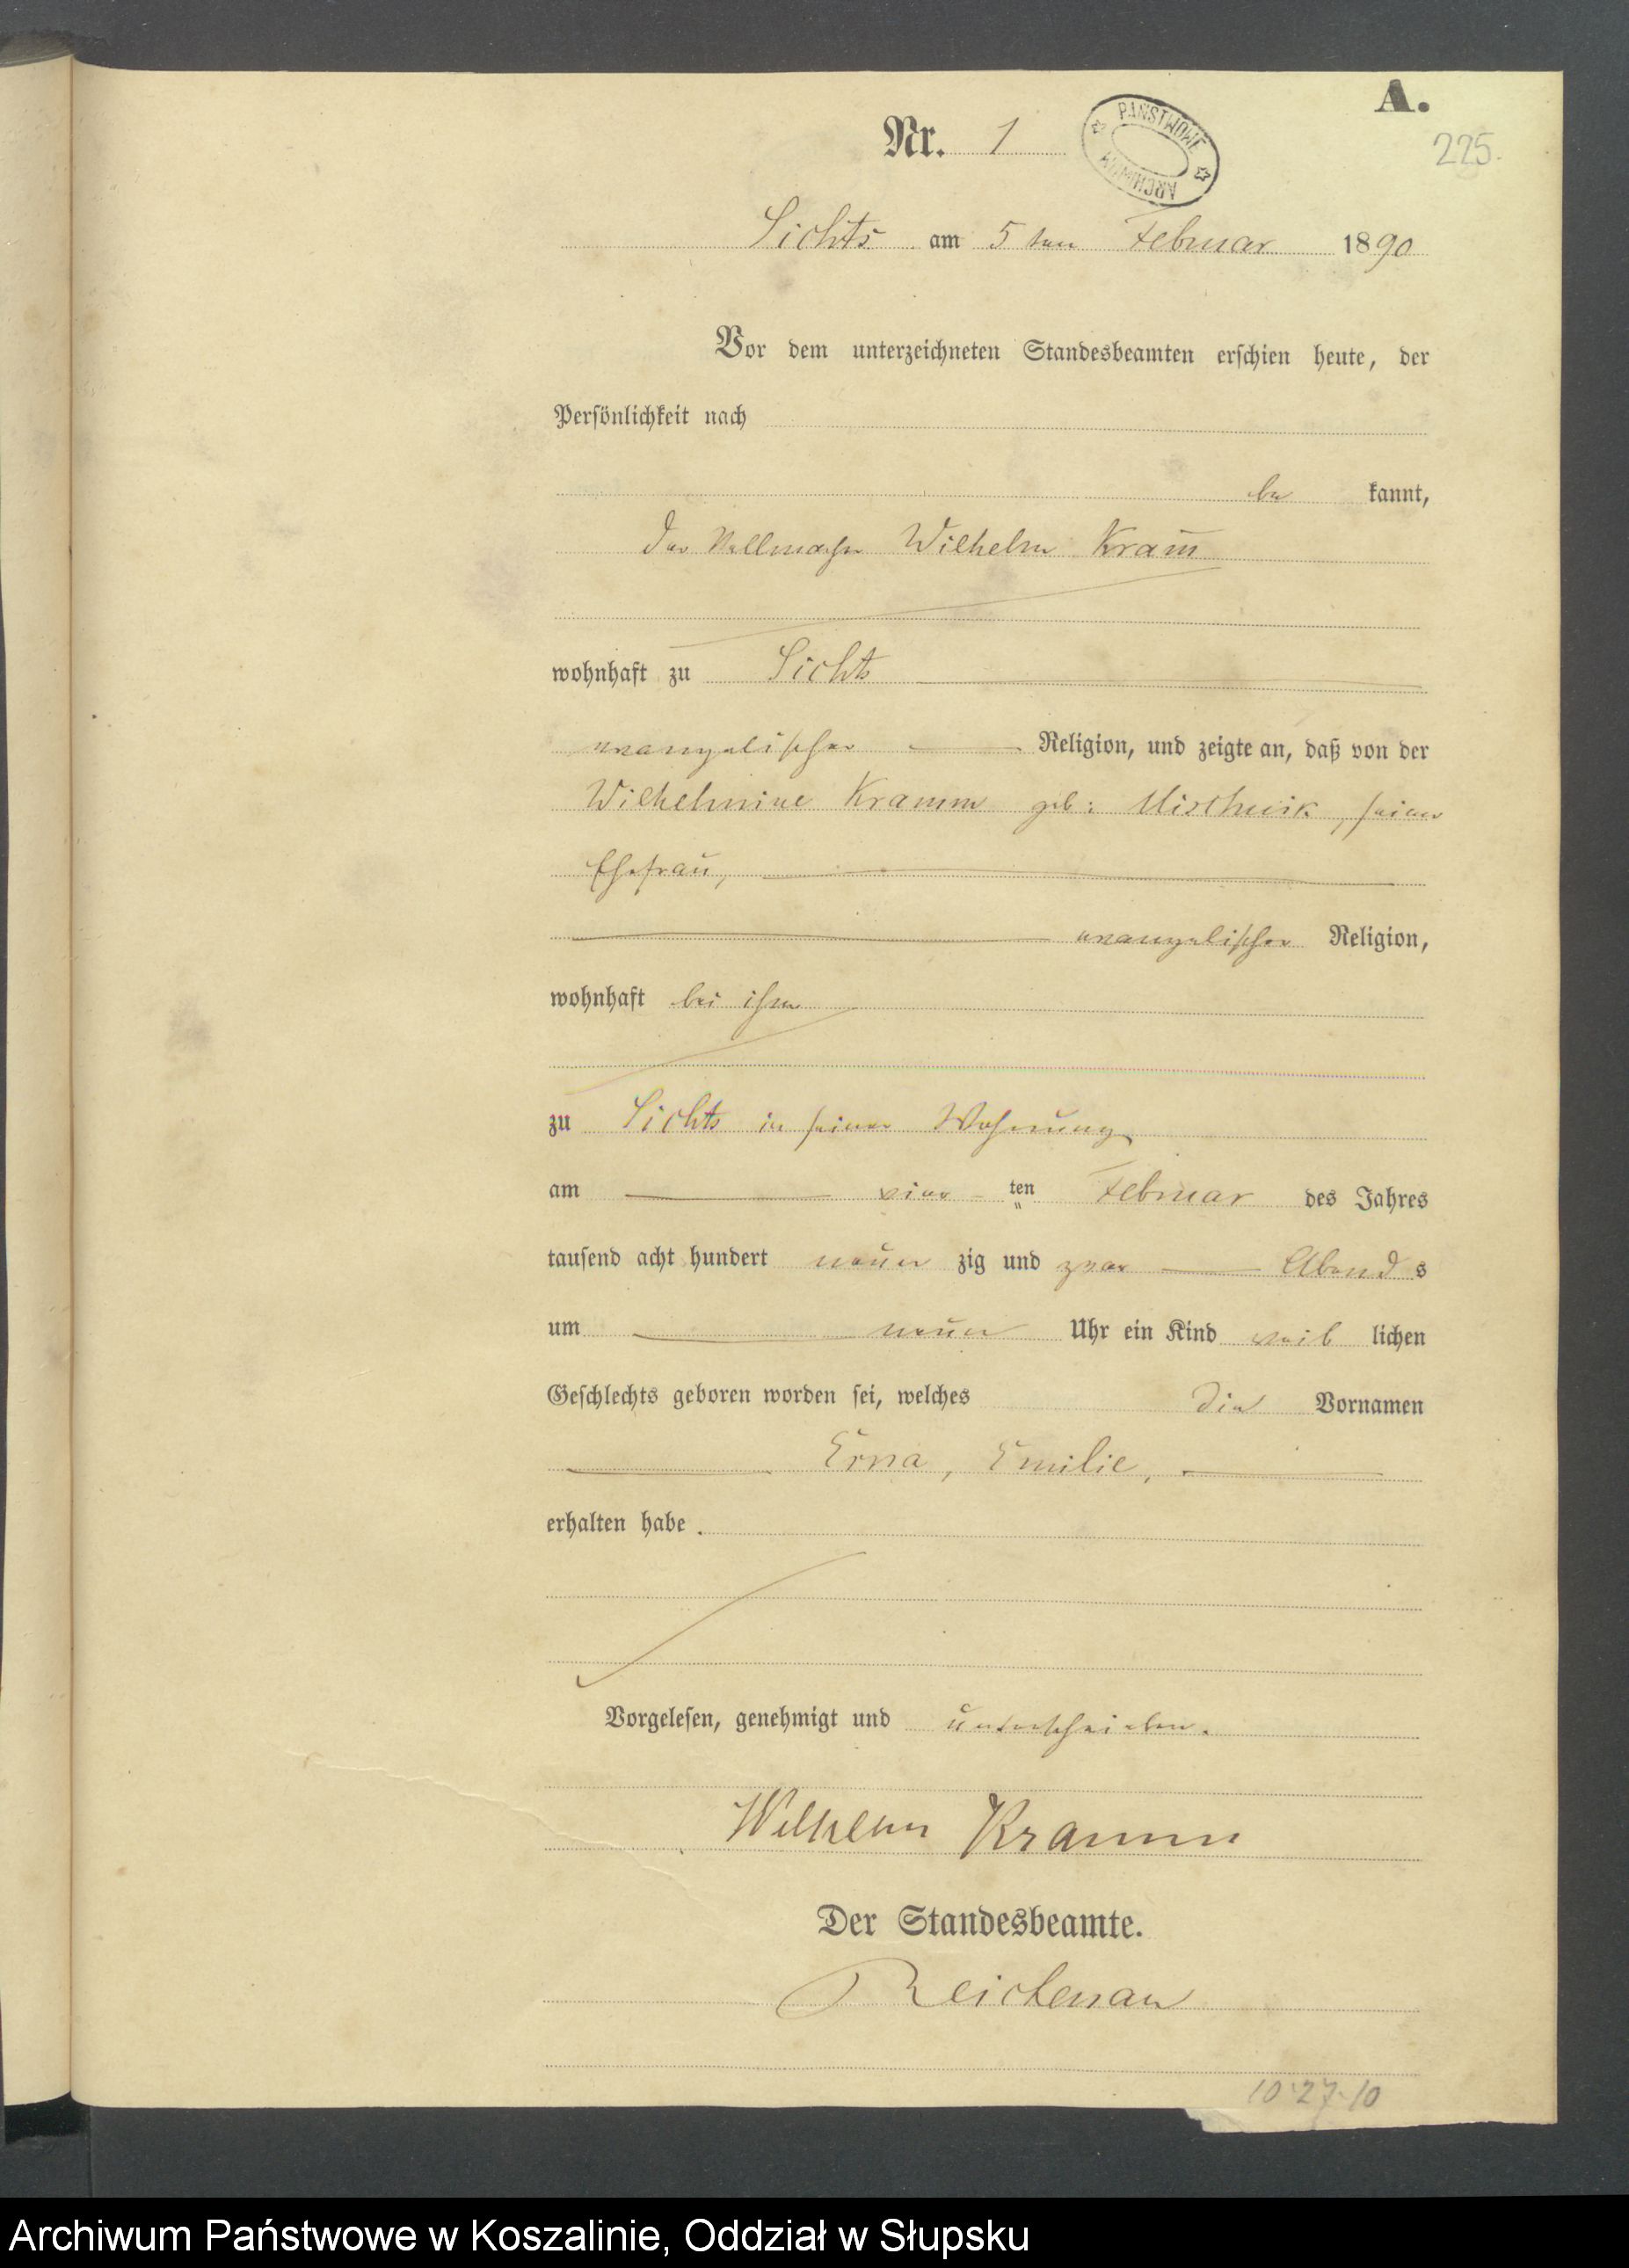 A.
Nr. 1
PAŃSTWOWE ARCHIWUM
225.
Lichts am 5 ten Februar 1890
Vor dem unterzeichneten Standesbeamten erschien heute, der
Persönlichkeit nach
be kannt,
der Wilhelm Kram̅
wohnhaft zu Lichts
evangelischer Religion, und zeigte an, daß von der
Wilhelmine Kramm geb: seiner
Ehefrau,
evangelischer Religion,
wohnhaft bei ihm
zu Lichts in seiner Wohnung
am vier ten Februar des Jahres
tausend acht hundert neun zig und zwar Abend s
um neun Uhr ein Kind weib lichen
Geschlechts geboren worden sei, welches die Vornamen
Erna, Emilie,
erhalten habe.
Vorgelesen, genehmigt und unterschrieben.
Wilhelm Kramm
Der Standesbeamte.
Reichenau
10·27·10
Archiwum Państwowe w Koszalinie, Oddział w Słupsku